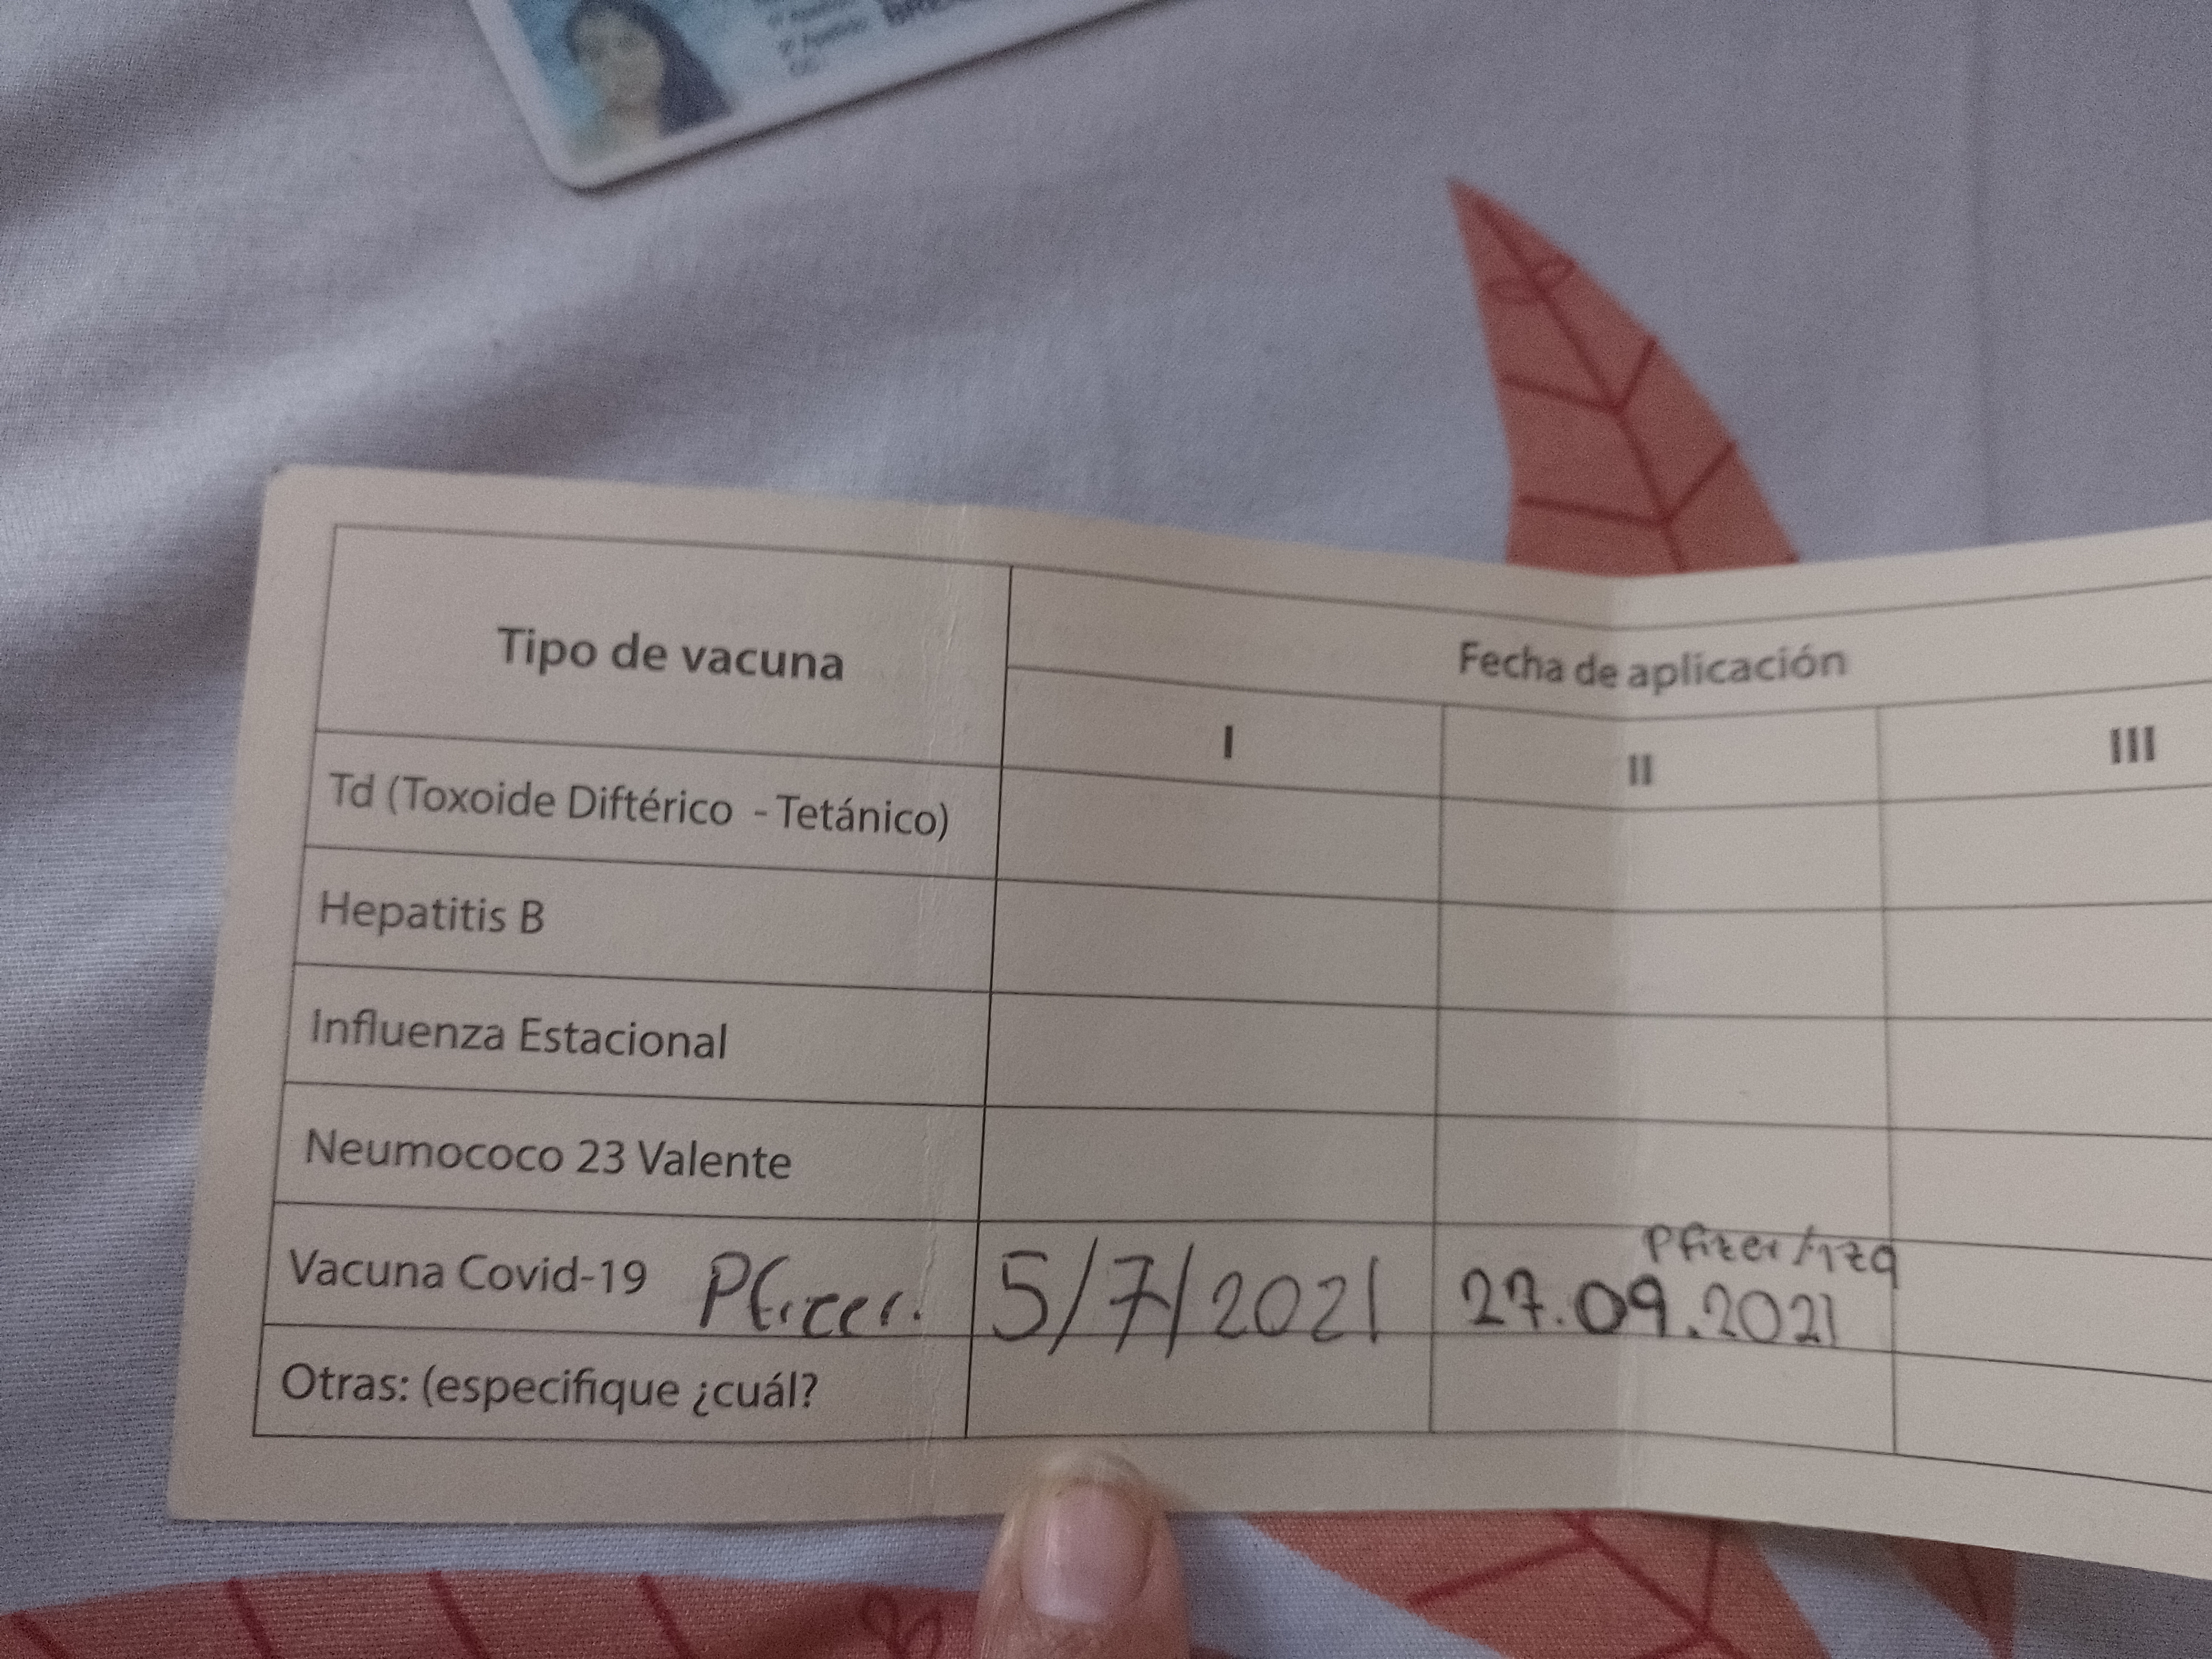 Tipo de vacuna
Fecha de aplicación
I II III
Td (Toxoide Diftérico - Tetánico)
Hepatitis B
Influenza Estacional
Neumococo 23 Valente
Vacuna Covid-19 Pfizer. 5/7/2021 27.09.2021
Pfizer/Izq
Otras: (especifique ¿cuál?